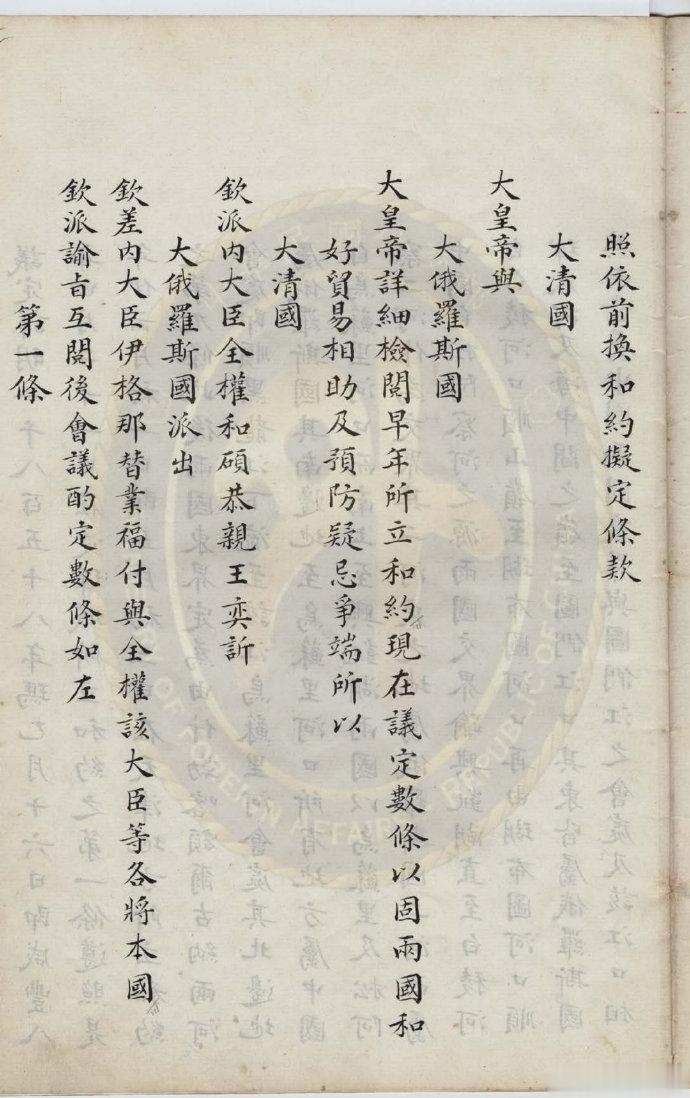 照依前換和約擬定條款
大清國
大皇帝與
大俄羅斯國
大皇帝詳細檢閱早年所立和約現在議定數條以固兩國和
好貿易相助及預防疑忌爭端所以
大清國
欽派內大臣全權和碩恭親王奕訢
大俄羅斯國派出
欽差內大臣伊格那替業福付與全權該大臣等各將本國
欽派諭旨互閱後會議酌定數條如左
第一條